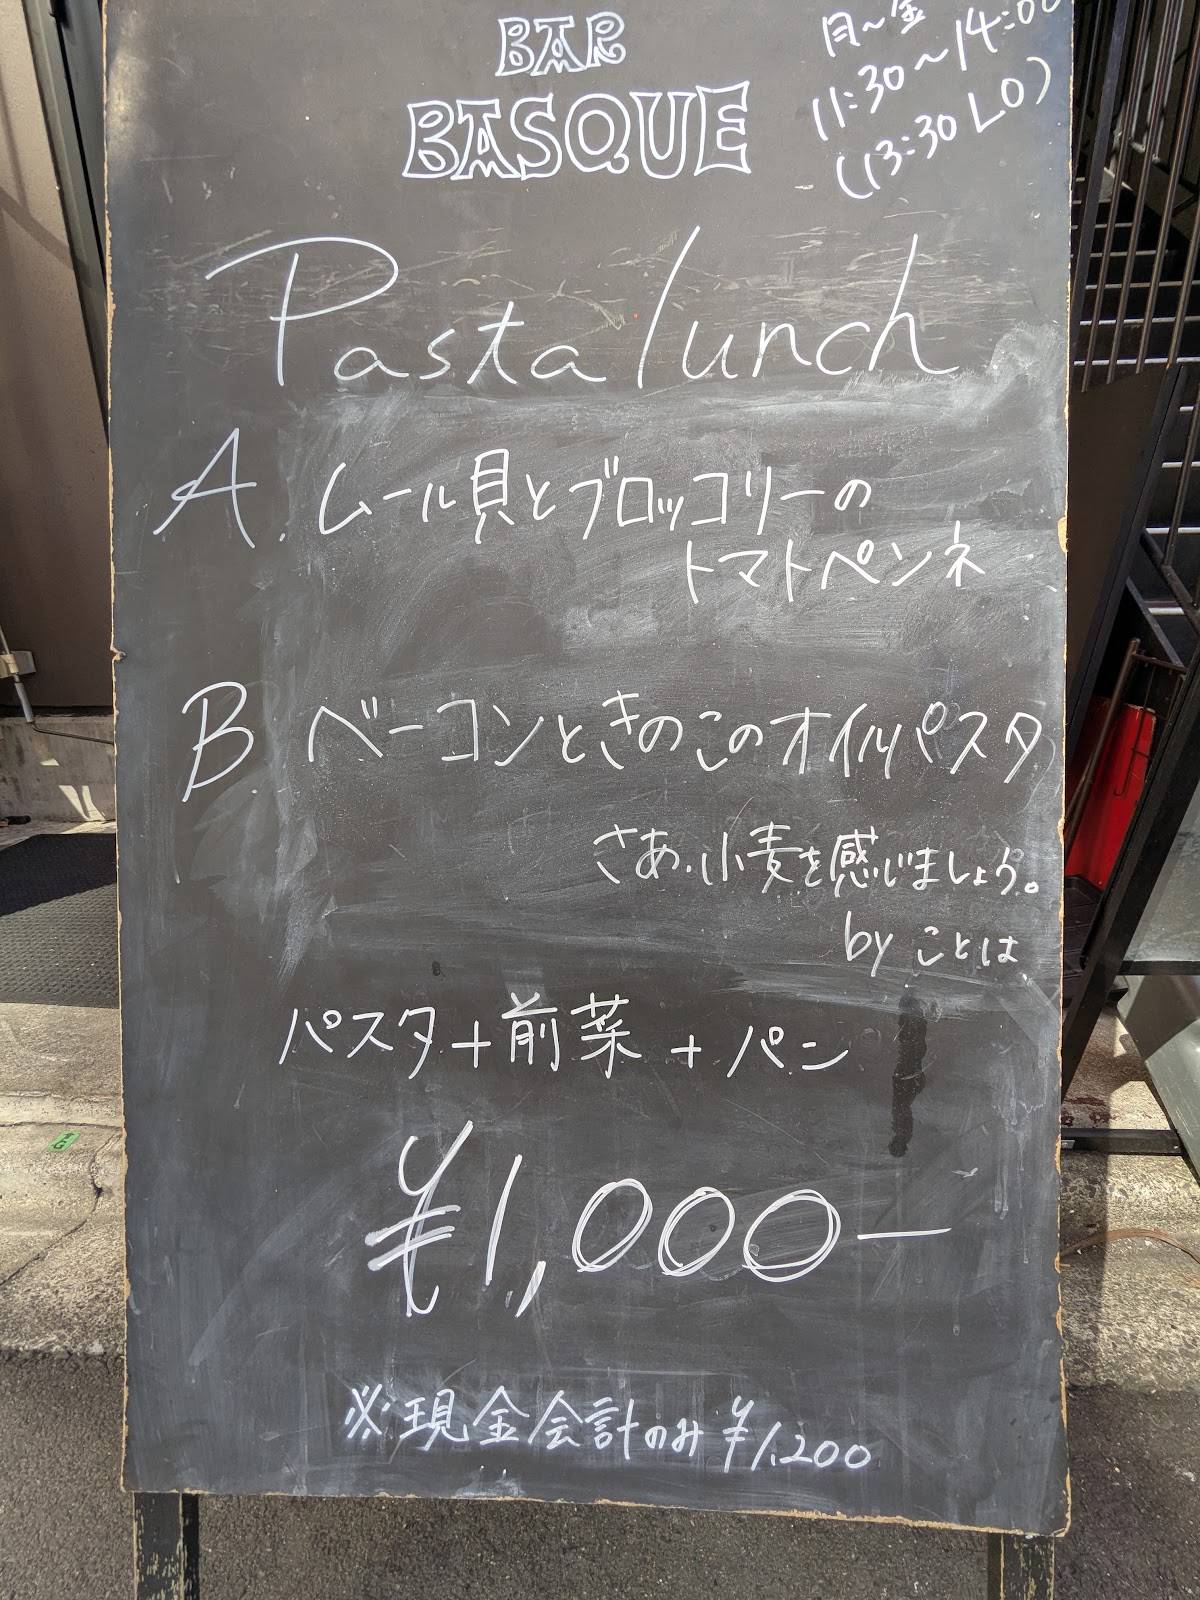 BAR
BASQUE
月〜金
11:30〜14:00
(13:30 LO)
Pasta lunch
A. ムール貝とブロッコリーの
トマトペンネ
B. ベーコンときのこのオイルパスタ
さあ、小麦を感じましょう。
by ことは
パスタ+前菜+パン
¥1,000-
※現金会計のみ ¥1,200